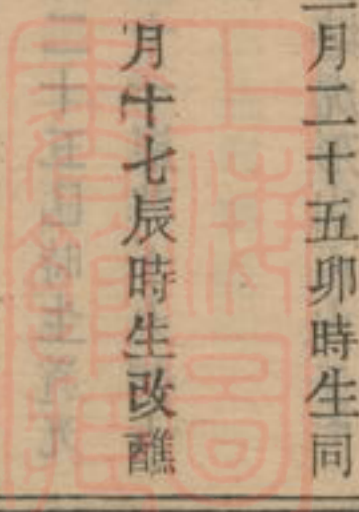 月二十五卯時生同
月十七辰時生改醮